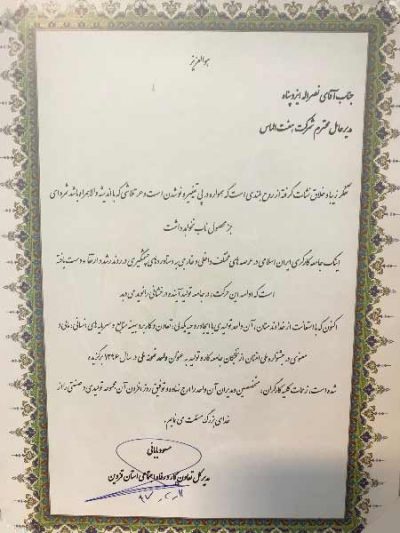 هوالعزیز
جناب آقای نصراله ایزدپناه
مدیرعامل محترم شرکت هفت الماس
تفکر زیبا و خلاق نشات گرفته از روح بلندی است که همواره در پی تغییر و نو شدن است و هر تلاشی که با اندیشه والا همراه باشد ثمره ای
جز محصول ناب نخواهد داشت
اینک جامعه کارگری ایران اسلامی در عرصه های مختلف داخلی و خارجی به دستاوردهای چشمگیری در روند رشد و ارتقاء دست یافته
است که ادامه این حرکت، در جامعه تولید آینده درخشانی را نوید می دهد
اکنون که با استعانت از خداوند منان، آن واحد تولیدی با ایجاد روحیه یکدلی، تعاون و کاربرد بهینه منابع و سرمایه های انسانی، مادی و
معنوی در جشنواره ملی امتنان از نخبگان جامعه کار و تولید به عنوان واحد نمونه ملی در سال ۱۳۹۶ برگزیده
شده است، زحمات کلیه کارگران، متخصصین و مدیران آن واحد را ارج نهاده و توفیق روزافزون آن مجموعه تولیدی و صنعتی را از
خدای بزرگ مسئلت می نمایم.
مدیرکل تعاون کار و رفاه اجتماعی استان قزوین